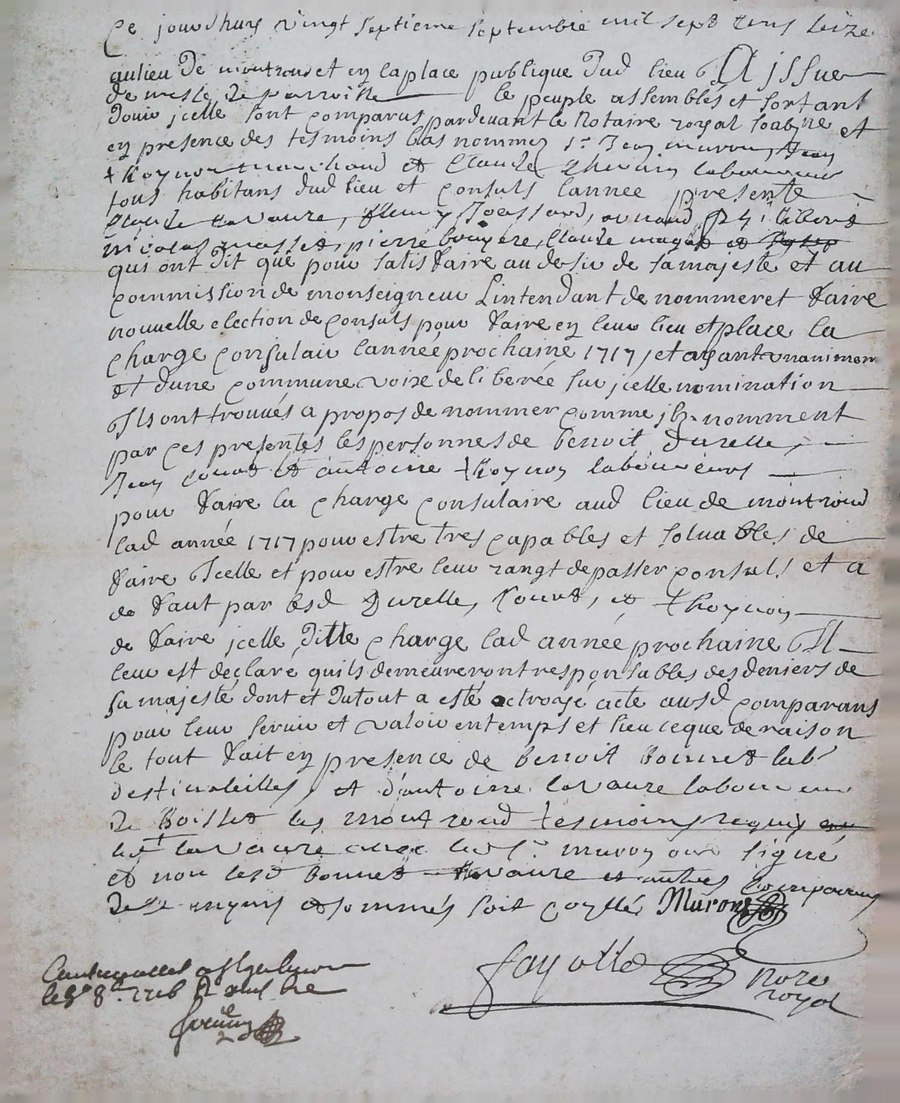 Ce jourdhuy vingt septieme septembre mil sept cens seize
au lieu de montrond et en la place publique dud lieu A jssue
de messe de parroisse le peuple assemblés et sortant
douir jcelle sont comparus pardevant le Notaire royal soubne et
en presence des tesmoins bas nommez sr Jean muron
thoynon marchand et Claude laboureur
tous habitans dud lieu et consuls lannee presente
Claude lavaure, fleury
nicolas masset, pierre bouyere, Claude
qui ont dit que pour satisfaire au desir de sa majesté et au
commission de monseigneur Lintendant de nommer et faire
nouvelle election de consuls pour faire en leur lieu et place la
charge consulaire lannée prochaine 1717 et ayant unanimem
et dune commune voix deliberée sur jcelle nomination
Ils ont trouvés a propos de nommer comme jls nomment
par ces presentes les personnes de benoit durelle,
Jean et antoine thoynon laboureurs
pour faire la charge consulaire aud lieu de montrond
lad année 1717 pour estre tres capables et solvables de
faire Icelle et pour estre leur rangt de passer consuls et a
de faut par lesd Durelle, et thoynon
de faire jcelle ditte charge lad année prochaine Il
leur est declaré quils demeureront responsables des deniers de
sa majesté dont et du tout a esté octroyé acte ausd comparans
pour leur servir et valoir en temps et lieu ce que de raison
le tout fait en presence de benoit bonnet lab
destivaleilles, et d'antoine lavaure laboureur
de boisset les mont rond tesmoins requis
led lavaure avec led sr muron ont signé
et non lesd bonnet et autres comparans
de ce enquis et sommés soit Muron
fayolle Nore
royal
le 8